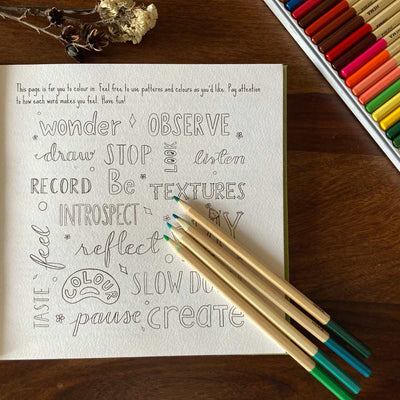 This page is for you to colour in. Feel free to use patterns and colours as you'd like. Pay attention
to how each word makes you feel. Have fun!
wonder OBSERVE
draw STOP LOOK listen
RECORD Be TEXTURES
INTROSPECT
feel reflect
COLOUR SLOW
TASTE pause create